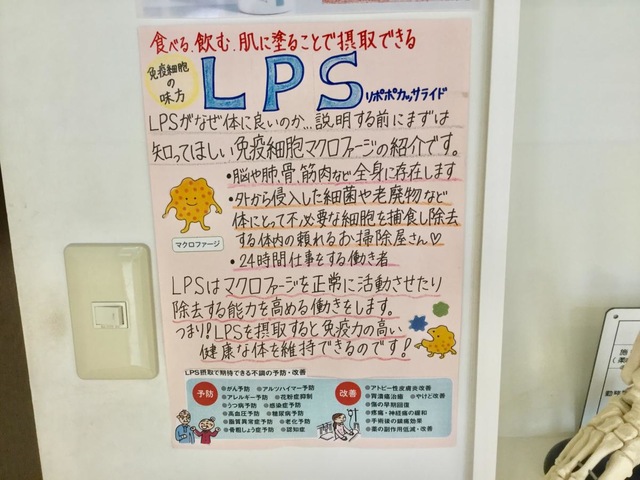 食べる、飲む、肌に塗ることで摂取できる
免疫細胞
の
味方
LPS
リポポカッサライド
LPSがなぜ体に良いのか…説明する前にまずは
知ってほしい免疫細胞マクロファージの紹介です。
・脳や肺、骨、筋肉など全身に存在します
・外から侵入した細菌や老廃物など
体にとって不必要な細胞を捕食し除去
する体内の頼れるお掃除屋さん♡
マクロファージ
・24時間仕事をする働き者
LPSはマクロファージを正常に活動させたり
除去する能力を高める働きをします。
つまり!LPSを摂取すると免疫力の高い
健康な体を維持できるのです!
LPS摂取で期待できる不調の予防・改善
予防
●がん予防 ●アルツハイマー予防
●アレルギー予防 ●花粉症抑制
●うつ病予防 ●感染症予防
●高血圧予防 ●糖尿病予防
●脂質異常症予防 ●老化予防
●骨粗しょう症予防 ●認知症
改善
●アトピー性皮膚炎改善
●胃潰瘍治療 ●やけど改善
●傷の早期回復
●疼痛・神経痛の緩和
●手術後の鎮痛効果
●薬の副作用低減・改善